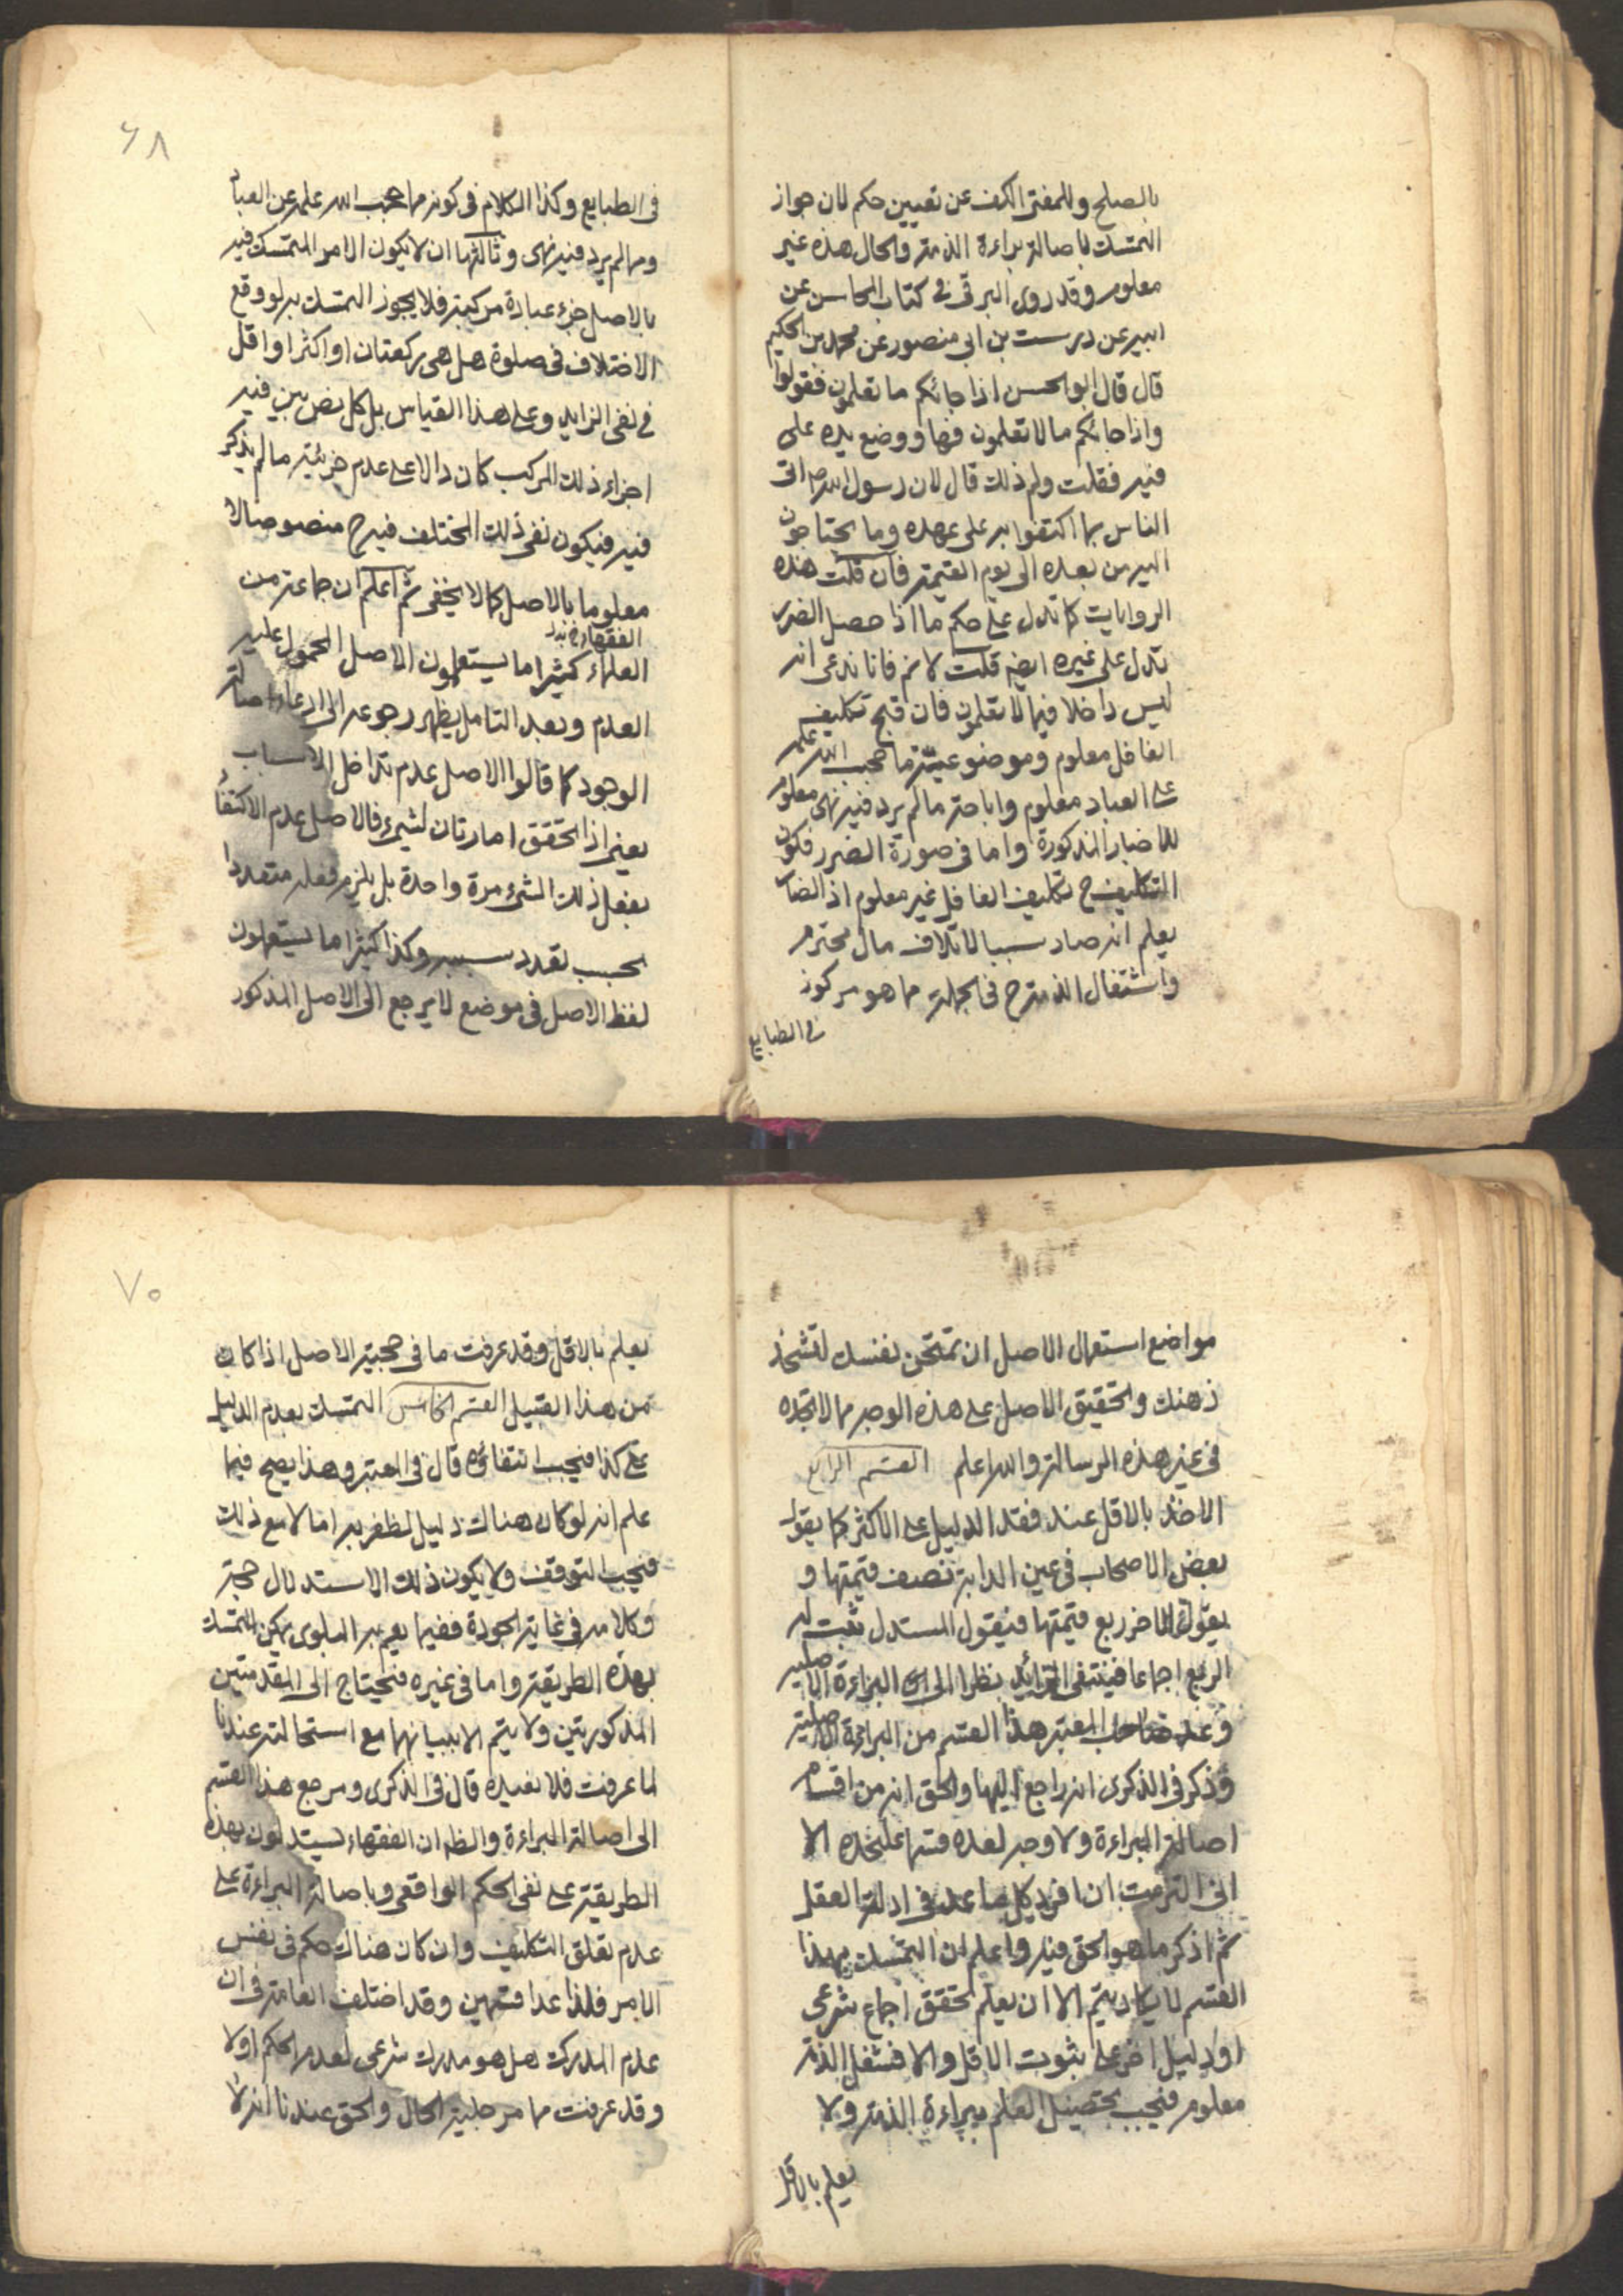 بالصلح وللمفتى الكف عن تعيين حكم لان جواز
التمسك باصالة براءة الذمة والحال هذه غير
معلوم وقد روى البرقى فى كتاب المحاسن عن
ابيه عن درست بن ابى منصور عن محمد بن الحكيم
قال قال ابوالحسن اذا جائكم ما تعلمون فقولوا
واذا جائكم مالا تعلمون فها ووضع يده على
فيه فقلت ولم ذلك قال لان رسول الله ص اتى
الناس بما اكتفوا به على عهده وما يحتاجون
اليه من بعده الى يوم القيمة فان قلت هذه
الروايات كما تدل على حكم ما اذا حصل الضرر
تدل على غيره ايضا قلت لانم فانا ندعى انه
ليس داخلا فيما لا تعلمون فان قبح تكليف
الغافل معلوم وموضوعية ما حجب الله علمه
عن العباد معلوم واباحة مالم يرد فيه نهى معلوم
للاخبار المذكورة واما فى صورة الضرر فكون
التكليف ح تكليف الغافل غير معلوم اذ الضار
يعلم انه صار سببا لاتلاف مال محترم
واشتغال الذمة ح فى الجملة مما هو مركوز
فى الطبايع
٦٨
فى الطبايع وكذا الكلام فى كونه مما حجب الله علمه عن العباد
ومما لم يرد فيه نهى وثالثها ان لا يكون الامر المتمسك فيه
بالاصل جزء عبادة مركبة فلا يجوز التمسك به لو وقع
الاختلاف فى صلوة هل هى ركعتان او اكثر او اقل
فى نفى الزايد وعلى هذا القياس بل كل نص بين فيه
اجزاء ذلك المركب كان دالا على عدم جزئية مالم يذكر
فيه فيكون نفى ذلك المختلف فيه ح منصوصا لا
معلوما بالاصل كما لا يخفى ثم اعلم ان جماعة من
الفقهاء خ بدل
العلماء كثيرا ما يستعملون الاصل المحمول عليه
العدم وبعد التامل يظهر رجوعه الى ادعاء اصالة
الوجود كما قالوا الاصل عدم تداخل الاسباب
يعنى اذا تحقق امارتان لشىء فالاصل عدم الاكتفاء
بفعل ذلك الشىء مرة واحدة بل يلزم فعله متعددا
بحسب تعدد سببه وكذا كثيرا ما يستعملون
لفظ الاصل فى موضع لا يرجع الى الاصل المذكور
مواضع استعمال الاصل ان تمتحن نفسك لتشحذ
ذهنك وتحقيق الاصل على هذه الوجه مما لا تجده
فى غير هذه الرسالة والله اعلم القسم الرابع
الاخذ بالاقل عند فقد الدليل على الاكثر كما يقول
بعض الاصحاب فى عين الدابة نصف قيمتها و
يقول الاخر ربع قيمتها فيقول المستدل ثبت له
الربع اجماعا فينتفى الزائد نظرا الى البراءة الاصلية
وعد صاحب المعتبر هذا القسم من البراءة الاصلية
وذكر فى الذكرى انه راجع اليها والحق انه من اقسام
اصالة البراءة ولا وجه لعده قسما على حده الا
انى التزمت ان افرد كل ما عد فى ادلة العقل
ثم اذكر ما هو الحق فيه واعلم ان التمسك بهذا
القسم لا يكاد يتم الا ان يعلم تحقق اجماع شرعى
او دليل اخر على ثبوت الاقل والا فشغل الذمة
معلوم فيجب تحصيل العلم ببراءة الذمة ولا
يعلم بالاقل
٧٠
يعلم بالاقل وقد عرفت ما فى حجية الاصل اذا كان
من هذا القبيل القسم الخامس التمسك بعدم الدليل
على كذا فيجب انتفاؤه قال فى المعتبر وهذا يصح فيما
علم انه لو كان هناك دليل لظفر به اما لا مع ذلك
فيجب التوقف ولا يكون ذلك الاستدلال حجة
وكلامه فى غاية الجودة ففيما يعم به البلوى يمكن التمسك
بهذه الطريقة واما فى غيره فيحتاج الى المقدمتين
المذكورتين ولا يتم الا ببيانهما مع استحالته عندنا
لما عرفت فلا نعيده قال فى الذكرى ومرجع هذا القسم
الى اصالة البراءة والظ ان الفقهاء يستدلون بهذه
الطريقة على نفى الحكم الواقعى وباصالة البراءة على
عدم تعلق التكليف وان كان هناك حكم فى نفس
الامر فلذا عدا قسمين وقد اختلف العامة فى ان
عدم المدرك هل هو مدرك شرعى لعدم الحكم اولا
وقد عرفت مما مر جلية الحال والحق عندنا انه لا